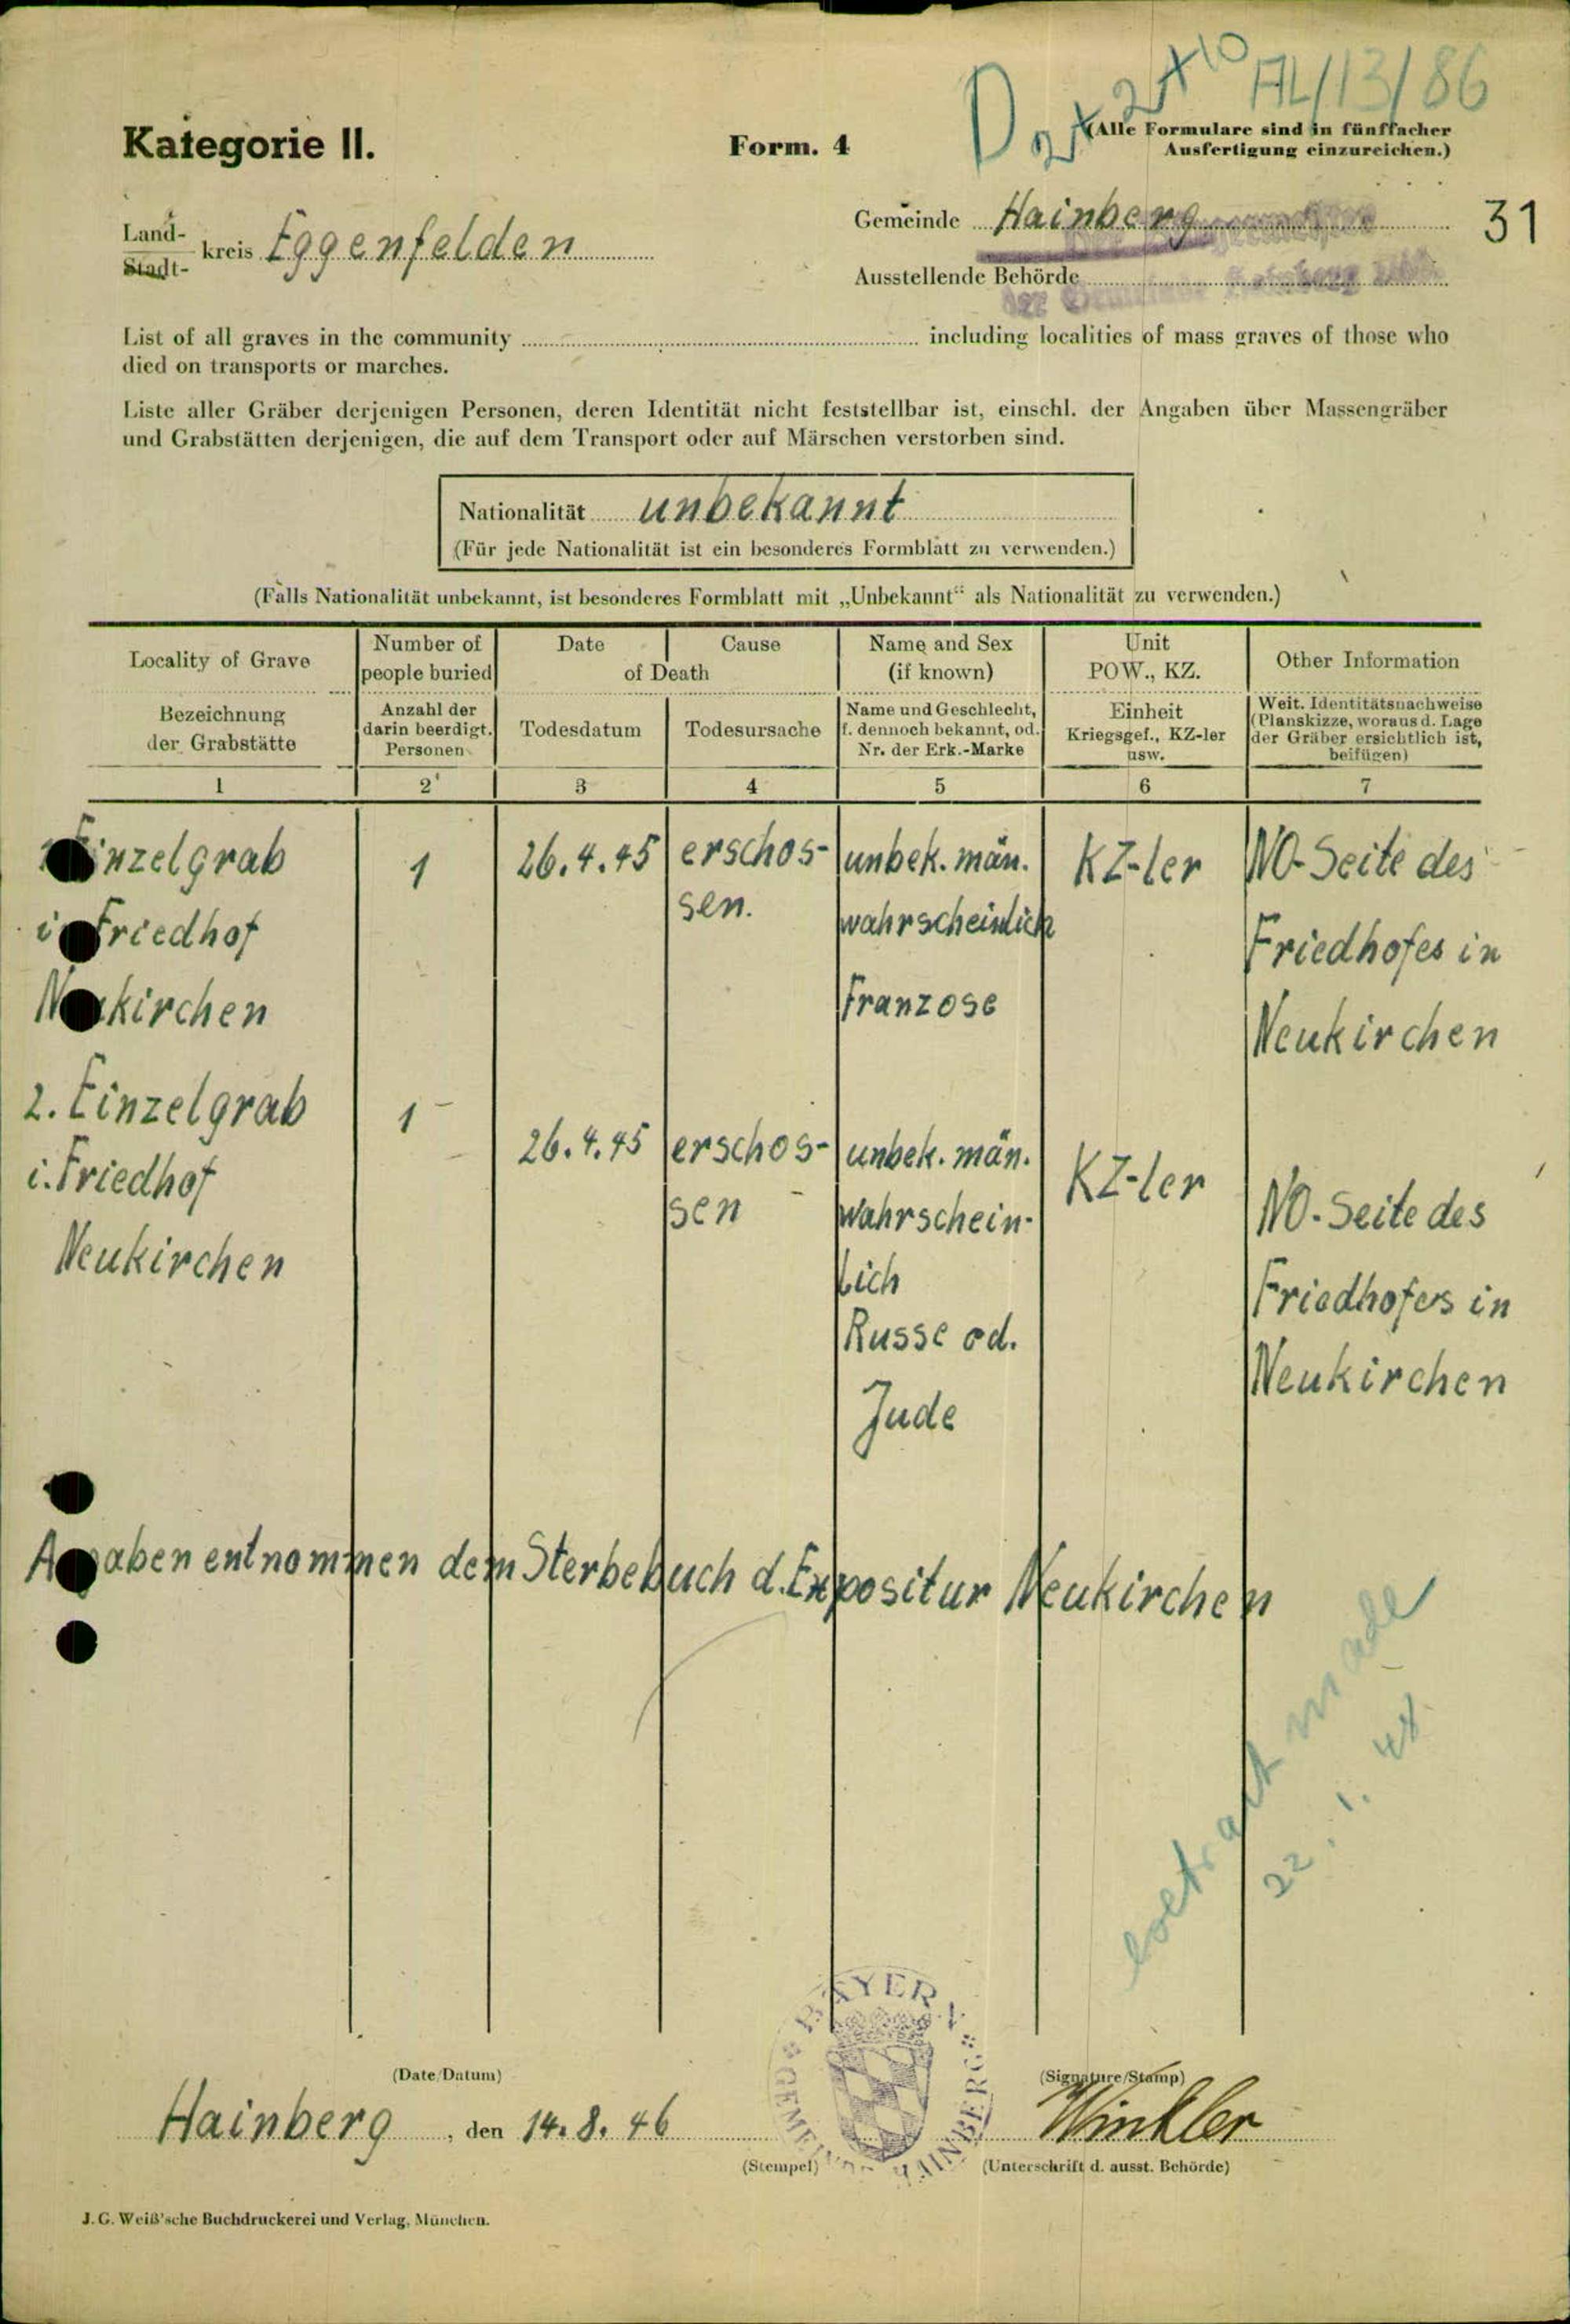 D 2x 2x10 AL/13/86
Kategorie II.
Form. 4
(Alle Formulare sind in fünffacher
Ausfertigung einzureichen.)
31
Land-
Stadt-
kreis Eggenfelden
Gemeinde Hainberg
Ausstellende Behörde
List of all graves in the community including localities of mass graves of those who
died on transports or marches.
Liste aller Gräber derjenigen Personen, deren Identität nicht feststellbar ist, einschl. der Angaben über Massengräber
und Grabstätten derjenigen, die auf dem Transport oder auf Märschen verstorben sind.
Nationalität unbekannt
(Für jede Nationalität ist ein besonderes Formblatt zu verwenden.)
(Falls Nationalität unbekannt, ist besonderes Formblatt mit „Unbekannt“ als Nationalität zu verwenden.)
Locality of Grave
Bezeichnung
der Grabstätte
1
Number of
people buried
Anzahl der
darin beerdigt.
Personen
2
Date Cause
of Death
Todesdatum Todesursache
3 4
Name and Sex
(if known)
Name und Geschlecht,
f. dennoch bekannt, od.
Nr. der Erk.-Marke
5
Unit
POW., KZ.
Einheit
Kriegsgef., KZ-ler
usw.
6
Other Information
Weit. Identitätsnachweise
(Planskizze, woraus d. Lage
der Gräber ersichtlich ist,
beifügen)
7
Einzelgrab
i. Friedhof
Neukirchen
1
26.4.45
erschos-
sen.
unbek. män.
wahrscheinlich
Franzose
KZ-ler
NO-Seite des
Friedhofes in
Neukirchen
2. Einzelgrab
i. Friedhof
Neukirchen
1
26.4.45
erschos-
sen
unbek. män.
wahrschein-
lich
Russe od.
Jude
KZ-ler
NO-Seite des
Friedhofes in
Neukirchen
Angaben entnommen dem Sterbebuch d. Expositur Neukirchen
made
(Date/Datum)
Hainberg, den 14.8.46
BAYERN
GEMEINDE HAINBERG
(Stempel)
(Signature/Stamp)
Winkler
(Unterschrift d. ausst. Behörde)
J. G. Weiß'sche Buchdruckerei und Verlag, München.